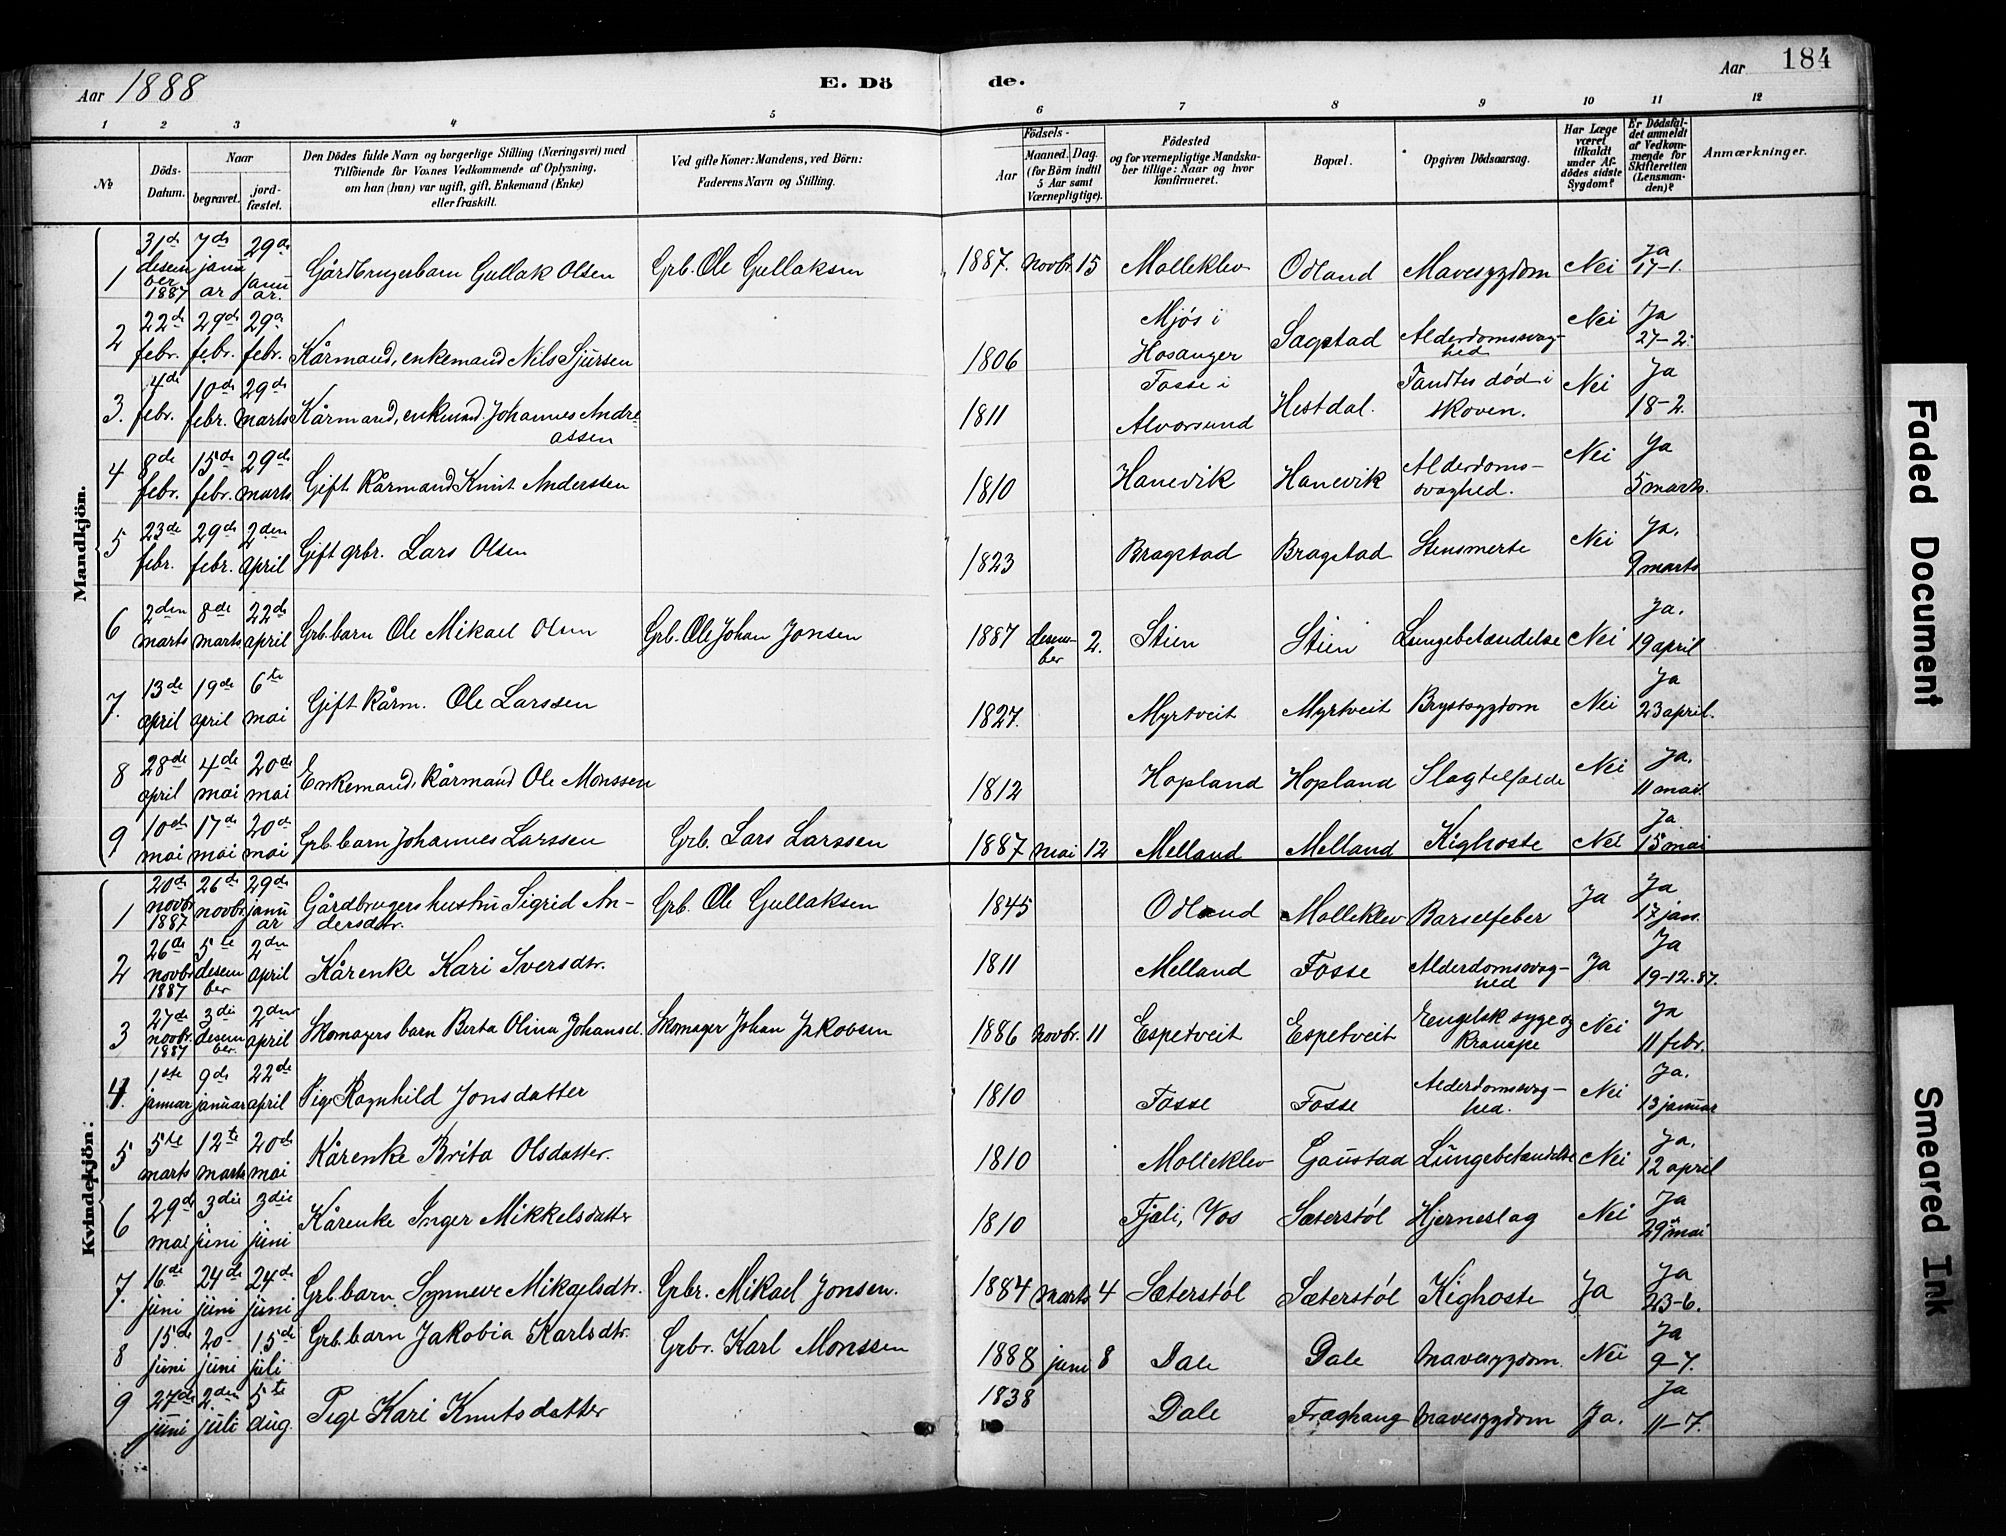 Aar 1888
E. Dö
de.
Aar 184
1 2 3 4 5 6 7 8 9 10 11 12
№
Döds-Datum.
Naar
begravet.
jord-fæstet.
Den Dödes fulde Navn og borgerlige Stilling (Næringsvei) med
Tilföiende for Voxnes Vedkommende af Oplysning,
om han (hun) var ugift, gift, Enkemand (Enke)
eller fraskilt.
Ved gifte Koner: Mandens, ved Börn:
Faderens Navn og Stilling.
Födsels-
Aar
Maaned. Dag.
(for Börn indtil
5 Aar samt
Værnepligtige).
Födested
og for værnepligtige Mandska-
ber tillige: Naar og hvor
konfirmeret.
Bopæl.
Opgiven Dödsaarsag.
Har Læge
været
tilkaldt
under Af-
dödes sidste
Sygdom?
Er Dödsfal-
det anmeldt
af Vedkom-
mende for
Skifteretten
(Lensman-
den)?
Anmærkninger.
Mandkjön.
1 31de desember 1887 7de januar 29de januar. Gårdbrugerbarn Gullak Olsen Grb. Ole Gullaksen 1887. Novbr. 15 Molleklev Odland Mavesygdom Nei Ja 17-1.
2 22de febr. 29de febr. 29de febr. Kårmand, enkemand Nils Sjursen 1806 Mjøs i Hosanger Sagstad Alderdomssvag-hed Nei Ja 27-2.
3. 4de febr. 10de febr. 29de marts Kårmand, enkemand. Johannes Andreassen 1811 Fosse i Alversund Hestdal. Fandtes død i skoven. Nei Ja 18-2.
4 8de febr. 15de febr. 29de marts Gift kårmand Knut Anderssen 1810 Hanevik Hanevik Alderdoms-svaghed. Nei Ja 5 marts.
5 23de febr. 29de febr. 2den april Gift grbr. Lars Olsen 1823 Bragstad Bragstad Stensmerte Nei Ja. 9 marts
6 2den marts 8de marts 22de april Grb. barn Ole Mikael Olsen Grb. Ole Johan Jonsen 1887 desember 2. Stien Stien Lungebetændelse Nei Ja. 19 april
7. 13de april 19de april 6te mai Gift kårm. Ole Larssen 1827. Myrtveit Myrtveit Brystsygdom Nei Ja 23 april.
8 28de april 4de mai 20de mai Enkemand, kårmand Ole Monssen 1812 Hopland Hopland Slagtilfælde Nei Ja. 11 mai.
9 10de mai 17de mai 20de mai Grb. barn Johannes Larssen Grb. Lars Larssen 1887 mai 12 Melland Melland Kighoste Nei Ja 15 mai
Kvindekjön:
1 20de novbr. 1887 26de novbr. 29de januar Gårdbrugers hustru Sigrid An-dersdtr. Grb. Ole Gullaksen 1845 Odland Molleklev Barselfeber Ja Ja 17 jan.
2 26de novbr. 1887 5te desember 2den april Kårenke Kari Iversdtr. 1811 Melland Fosse Alderdomssvag-hed Ja Ja 19-12.87.
3 27de novbr. 1887 3die desember. 2den april Skomagers barn Berta Olina Johansd. Skomager Johan Jakobsen 1886 Novbr. 11 Espetveit Espetveit Engelsk syge og krampe Nei Ja 11 febr.
4. 1ste januar 9de januar 22de april Pige Ragnhild Jonsdatter 1810 Fosse Fosse Alderdomssvag-hed. Nei Ja. 13 januar
5 5te marts 12te marts 20de mai Kårenke Brita Olsdatter. 1810 Molleklev Gaustad Lungebetændelse Nei Ja. 12 april
6 29de mai 3die juni 3die juni Kårenke Inger Mikkelsdatter 1810 Fjeli, Vos Sæterstøl Hjerneslag Nei Ja 29de mai
7. 16de juni 24de juni 24de juni Grb. barn Synneve Mikaelsdtr. Grbr. Mikael Jonsen. 1884 marts 4 Sæterstøl Sæterstøl Kighoste Ja Ja 23-6.
8 15de juni 20 juni 15de juli Grb. barn Jakobia Karlsdtr. Grbr. Karl Monssen 1888 juni 8 Dale Dale Mavesygdom Nei Ja 9-7.
9 27de juni 2den juli 5te aug. Pige Kari Knutsdatter 1838 Dale Frøghaug Mavesygdom Ja. Ja 11-7.
Faded Document
Smeared Ink